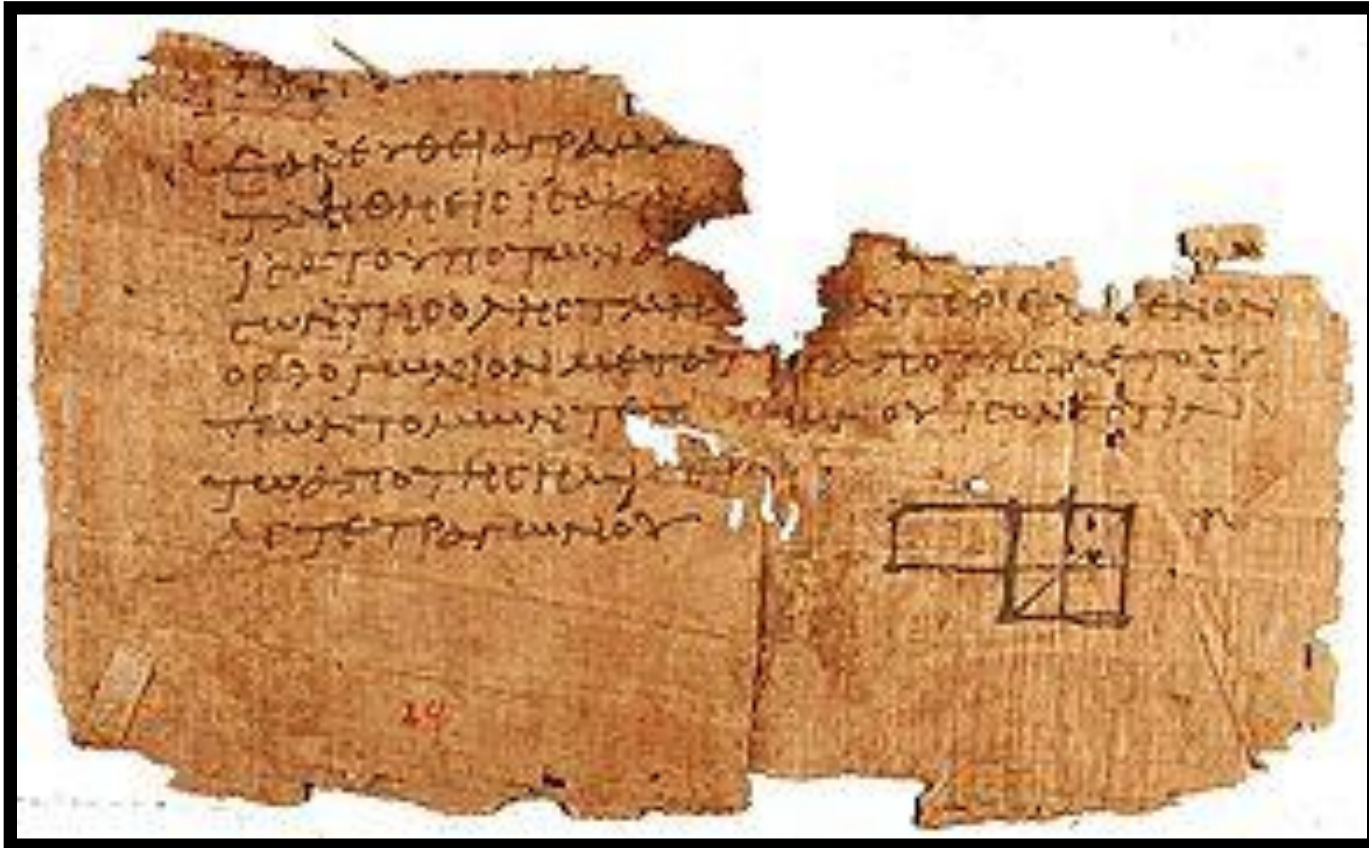 ΕΑΝ ΕΥΘΕΙΑ ΓΡΑΜΜ
ΤΜΗΘΗ ΕΙϹ ΙϹΑ Κ
ΙϹΑ ΤΟ ΥΠΟ ΤΩΝ Α
ϹΩΝ ΤΗϹ ΟΛΗϹ ΤΜΗ Ν ΠΕΡΙΕΧΟΜΕΝΟΝ
ΟΡΘΟΓΩΝΙΟΝ ΜΕΤΑ Τ ΑΠΟ ΤΗϹ ΜΕΤΟΞΥ
ΤΩΝ ΤΟΜΩΝ ΤΕΤ ΩΝΟΥ ΙϹΟΝ ΕϹΤΙΝ
ΤΩ ΑΠΟ ΤΗϹ ΗΜΙ
ΑϹ ΤΕΤΡΑΓΩΝΟΥ